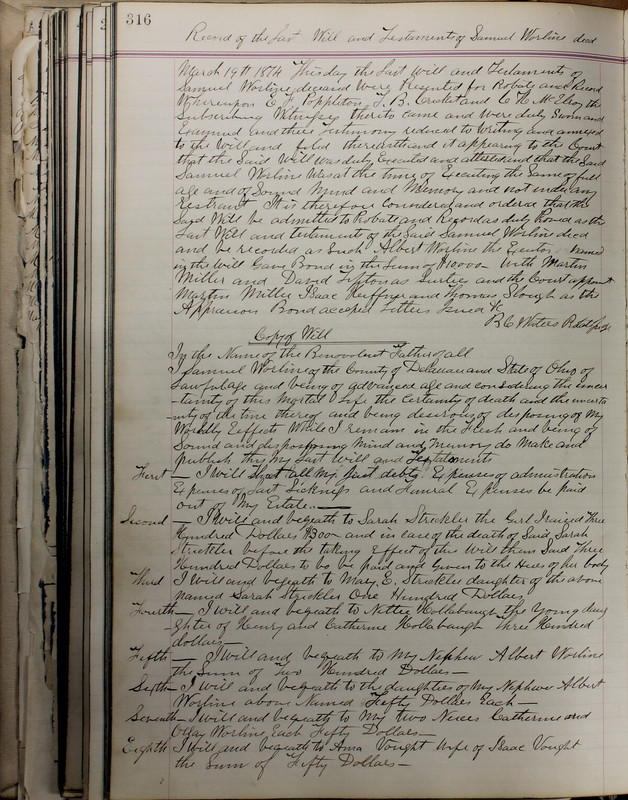 316
Record of the Last Will and Testaments of Samuel Worline decd
March 19th 1874 This day the Last Will and Testaments of
Samuel Worline deceased were Presented for Probate and Record
Whereupon E. F. Poppleton, J. B. Crocket and C. H. McElroy the
Subscribing Witnesses thereto came and were duly Sworn and
Examined and their Testimony reduced to Writing and annexed
to the Will and filed therewith and it appearing to the Court
that the Said Will was duly Executed and attested and that the Said
Samuel Worline was at the time of Executing the Same of full
age and of Sound Mind and Memory and not under any
restraint It is therefore Considered and ordered that the
Said Will be admitted to Probate and Record as duly Proved as the
Last Will and testament of the Said Samuel Worline decd
and be recorded as Such Albert Worline the Executor named
in the Will Gave Bond in the Sum $10000 - With Martin
Miller and David Tipton as Sureties and the Court appoint
Martin Miller Isaac and Thomas Slough as the
Appraisers Bond accepted Letters Issued &c
B C Waters
Copy of Will
In the Name of the Benevolent Father of all
I Samuel Worline of the County of Delaware and State of Ohio of
Lawful age and being of advanced age and considering the uncer
-tainty of this Mortal Life the Certainty of death and the uncerta
-inty of the time thereof and being desirous of disposing of My
Worldly Effects While I remain in the Flesh and being of
Sound and disposing Mind and Memory do Make and
publish this My Last Will and Testaments
First - I Will that all My Just debts Expenses of administration
Expenses of Last Sickness and Funeral Expenses be paid
out of My Estate -
Second - I Will and beqeath to Sarah Strickler the Girl I raised Three
Hundred Dollars $300 - and in case of the death of Said Sarah
Strickler before the taking Effect of this Will then Said Three
Hundred Dollars to be paid and Given to the Heirs of her body
Third I Will and beqeath to Mary E. Strickler daughter of the above
named Sarah Strickler One Hundred Dollars
Fourth - I Will and beqeath to Nettie Hollabaugh the Young dau
-ghter of Henry and Catherine Hollabaugh Three Hundred
dollars -
Fifth - I Will and beqeath to My Nephew Albert Worline
the Sum of Two Hundred Dollars -
Sixth - I Will and beqeath to the daughters of My Nephew Albert
Worline above Named Fifty Dollars Each -
Seventh - I Will and beqeath to My two Nieces Catherine and
Worline Each Fifty Dollars -
Eighth I Will and beqeath to Ama Vought Wife of Isaac Vought
the Sum of Fifty Dollars -